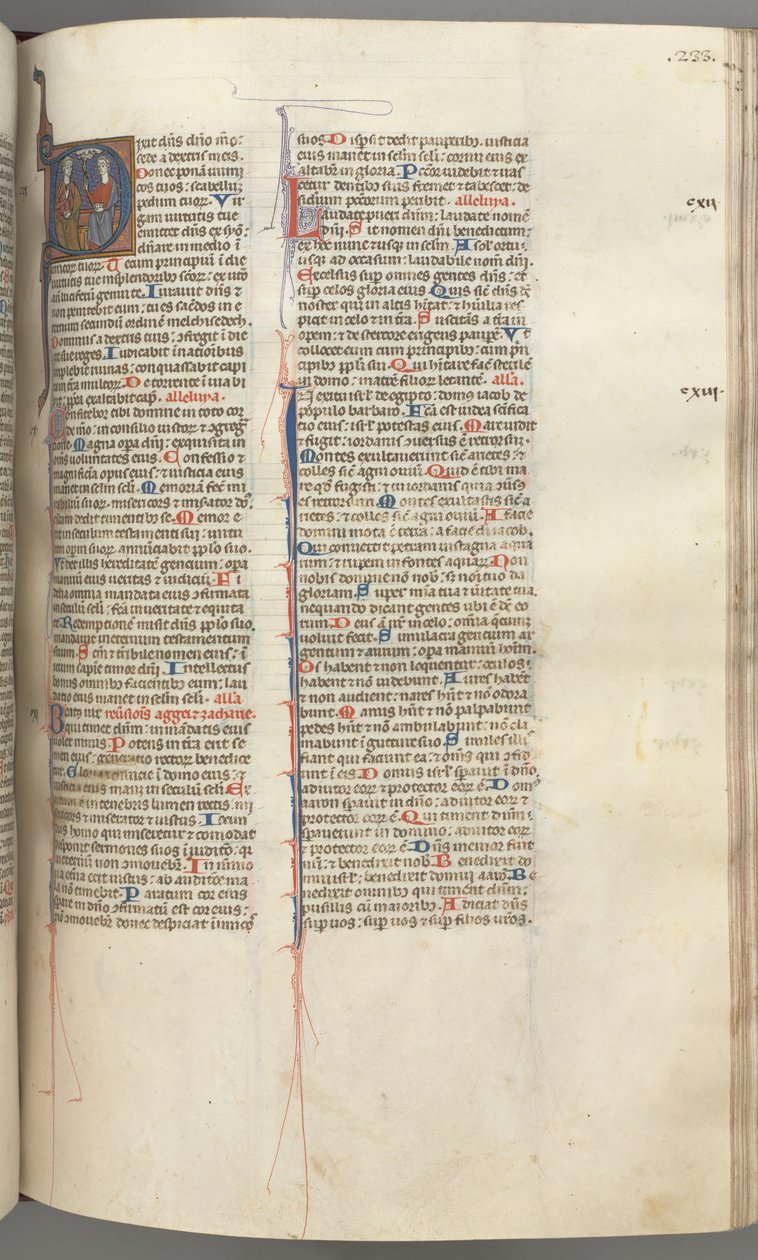 .233.
Dixit dn̄s dn̄o mō:
sede a dextris meis.
Donec ponā inimi
cos tuos: scabellū
pedum tuoꝝ. Vir
gam uirtutis tue
emittet dn̄s ex syō:
dn̄are in medio ī
imicoꝝ tuoꝝ. Tecum principiū ī die
uirtutis tue insplendoribꝫ sc̄oꝝ: ex utō
an̄ luciferū genui te. Iurauit dn̄s ⁊
non penitebit eum: tu es sac̄dos in e
ternum secundū ordinē melchisedech.
Dominus a dextris tuis: ↄfregit ī die
ire sue reges. Iudicabit ī natiōibus
implebit ruinas: conquassabit capi
ta ī t̄ra multoꝝ. De torrente ī uia bi
bet: ꝓpea exaltabit cap̄. alleluya.
Confitebor tibi domine in toto cor
de mō: in consilio iustoꝝ ⁊ ↄgreḡ
tione. Magna opa dn̄i: exquisita in
om̄s uoluntates eius. Confessio ⁊
magnificīa opus eius: ⁊ iusticia eius
manet in sclm̄ scli. Memoriā fec̄ mi
rabiliū suoꝝ. misericors ⁊ mis̄ator dn̄s.
escam dedit timentibꝫ se. Memor e
rit in seculum testamenti sui: uirtu
tem opm̄ suoꝝ annūciabit pp̄lo suo.
Vt det illis hereditatē gencium: opa
manuū eius ueritas ⁊ iudiciū. Fi
delia omnia mandata eius ↄfirmata
in seculū scli: fc̄a in ueritate ⁊ equita
te. Redemptionē misit dn̄s pp̄lo suo.
mandauit ineternum testamentum
suum. Sc̄m ⁊ t̄ribile nomen eius: ī
icium sapīe timor dn̄i. Intellectus
bonus omnibꝫ facientibꝫ eum: lau
datio eius manet in sclm̄ scli. all̄a
Beatꝰ uir reūsiōis aggei ⁊ zacharie.
qui timet dn̄m: in mādatis eius
uolet nimis. Potens in t̄ra erit se
men eius: generatio rectoꝝ benedice
tur. Gloria ⁊ diuicie ī domo eius: ⁊
iusticia eius manꝫ in seculū scli. Ex
ortum ē in tenebris lumen rectis: mi
sericors ⁊ miserator ⁊ iustus. Iocun
dus homo qui miseretur ⁊ comodat
disponit sermones suos ī iudicō: qꝛ
in eternū non ↄmouebiꝶ. In memo
ria et̄na erit iustus: ab auditōe ma
la nō timebit. Paratum cor eius
sp̄are in dn̄o ↄfirmatū est cor eius:
nō ↄmouebiꝶ donec despiciat īimicos
suos. Disp̄sit dedit pauꝑibꝫ. iusticia
eius manet in sclm̄ scli: cornu eius ex
altabiꝶ in gloria. Pecc̄or uidebit ⁊ iras
cetur dentibꝫ suis fremet ⁊ tabescet: de
siderium pecc̄orum peribit. alleluya.
cxii
Laudate pueri dn̄m: laudate nomē
dn̄i. Sit nomen dn̄i benedictum:
ex hoc nunc ⁊ usqꝫ in sclm̄. A solꝫ ortu:
usqꝫ ad occasum: laudabile nom̄ dn̄i.
Excelsus sup omnes gentes dn̄s: et
sup celos gloria eius. Quis sic̄ dn̄s dꝫ
noster qui in altis hītat: ⁊ hūilia res
picit in celo ⁊ in t̄ra. Suscitās a t̄ra in
opem: ⁊ de stercore erigens paupē. Vt
collocet eum cum principibꝫ: cum pn̄
cipibꝫ pp̄li sui. Qui hītare fac̄ sterilē
in domo: matrē filioꝝ letantē. all̄a.
cxiii.
In exitu isrl̄ de egipto: domꝰ iacob de
pōpulo barbaro. Fc̄a est iudea sc̄ifica
tio eius: isrl̄ potestas eius. Mare uidit
⁊ fugit: iordanis ↄuersus ē retrorsū.
Montes exultauerunt sic̄ arietes: ⁊
colles sic̄ agni ouiū. Quid ē tibi ma
re qd̄ fugisti: ⁊ tu iordanis quia ↄūsꝰ
es retrorsū. Montes exultastis sic̄ a
rietes: ⁊ colles sic̄ agni ouiū. A facie
domini mota ē terra: a facie dī iacob.
Qui conuertit petram instagna aqua
rum: ⁊ rupem in fontes aquaꝝ. Non
nobis domine nō nob̄: sꝫ noī tuo da
gloriam. Super mīa tua ⁊ ūitate tua.
nequando dicant gentes ubi ē dꝫ eo
rum. Deus aūt nr̄ in celo: omīa q̄cum̄qꝫ
uoluit fecit. Simulacra gencium ar
gentum ⁊ aurum: opa manuū hoīm.
Os habent ⁊ non loquentur: oculos
habent ⁊ nō uidebunt. Aures habēt
⁊ non audient: nares hn̄t ⁊ nō odora
bunt. Manus hn̄t ⁊ nō palpabunt
pedes hn̄t ⁊ nō ambulabunt: nō cla
mabunt ī gutture suo. Similes illis
fiant qui faciunt ea: ⁊ om̄s qui ↄfid
unt ī eis. Domus isrl̄ sp̄auit ī dn̄o.
adiutor eoꝝ ⁊ protector eoꝝ ē. Domꝰ
aaron sp̄auit in dn̄o: adiutor eoꝝ ⁊
protector eoꝝ ē. Qui timent dn̄m:
sp̄auerunt in domino: adiutor eoꝝ
⁊ protector eoꝝ ē. Dn̄s memor fuit
nr̄i: ⁊ benedixit nob̄. Benedixit do
mui isrl̄: benedixit domui aarō. Be
nedixit omnibꝫ qui timent dn̄m:
pusillis cū maioribꝫ. Adiciat dn̄s
sup uos: sup uos ⁊ sup filios uros.